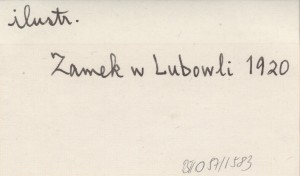 ilustr.
Zamek w Lubowli 1920